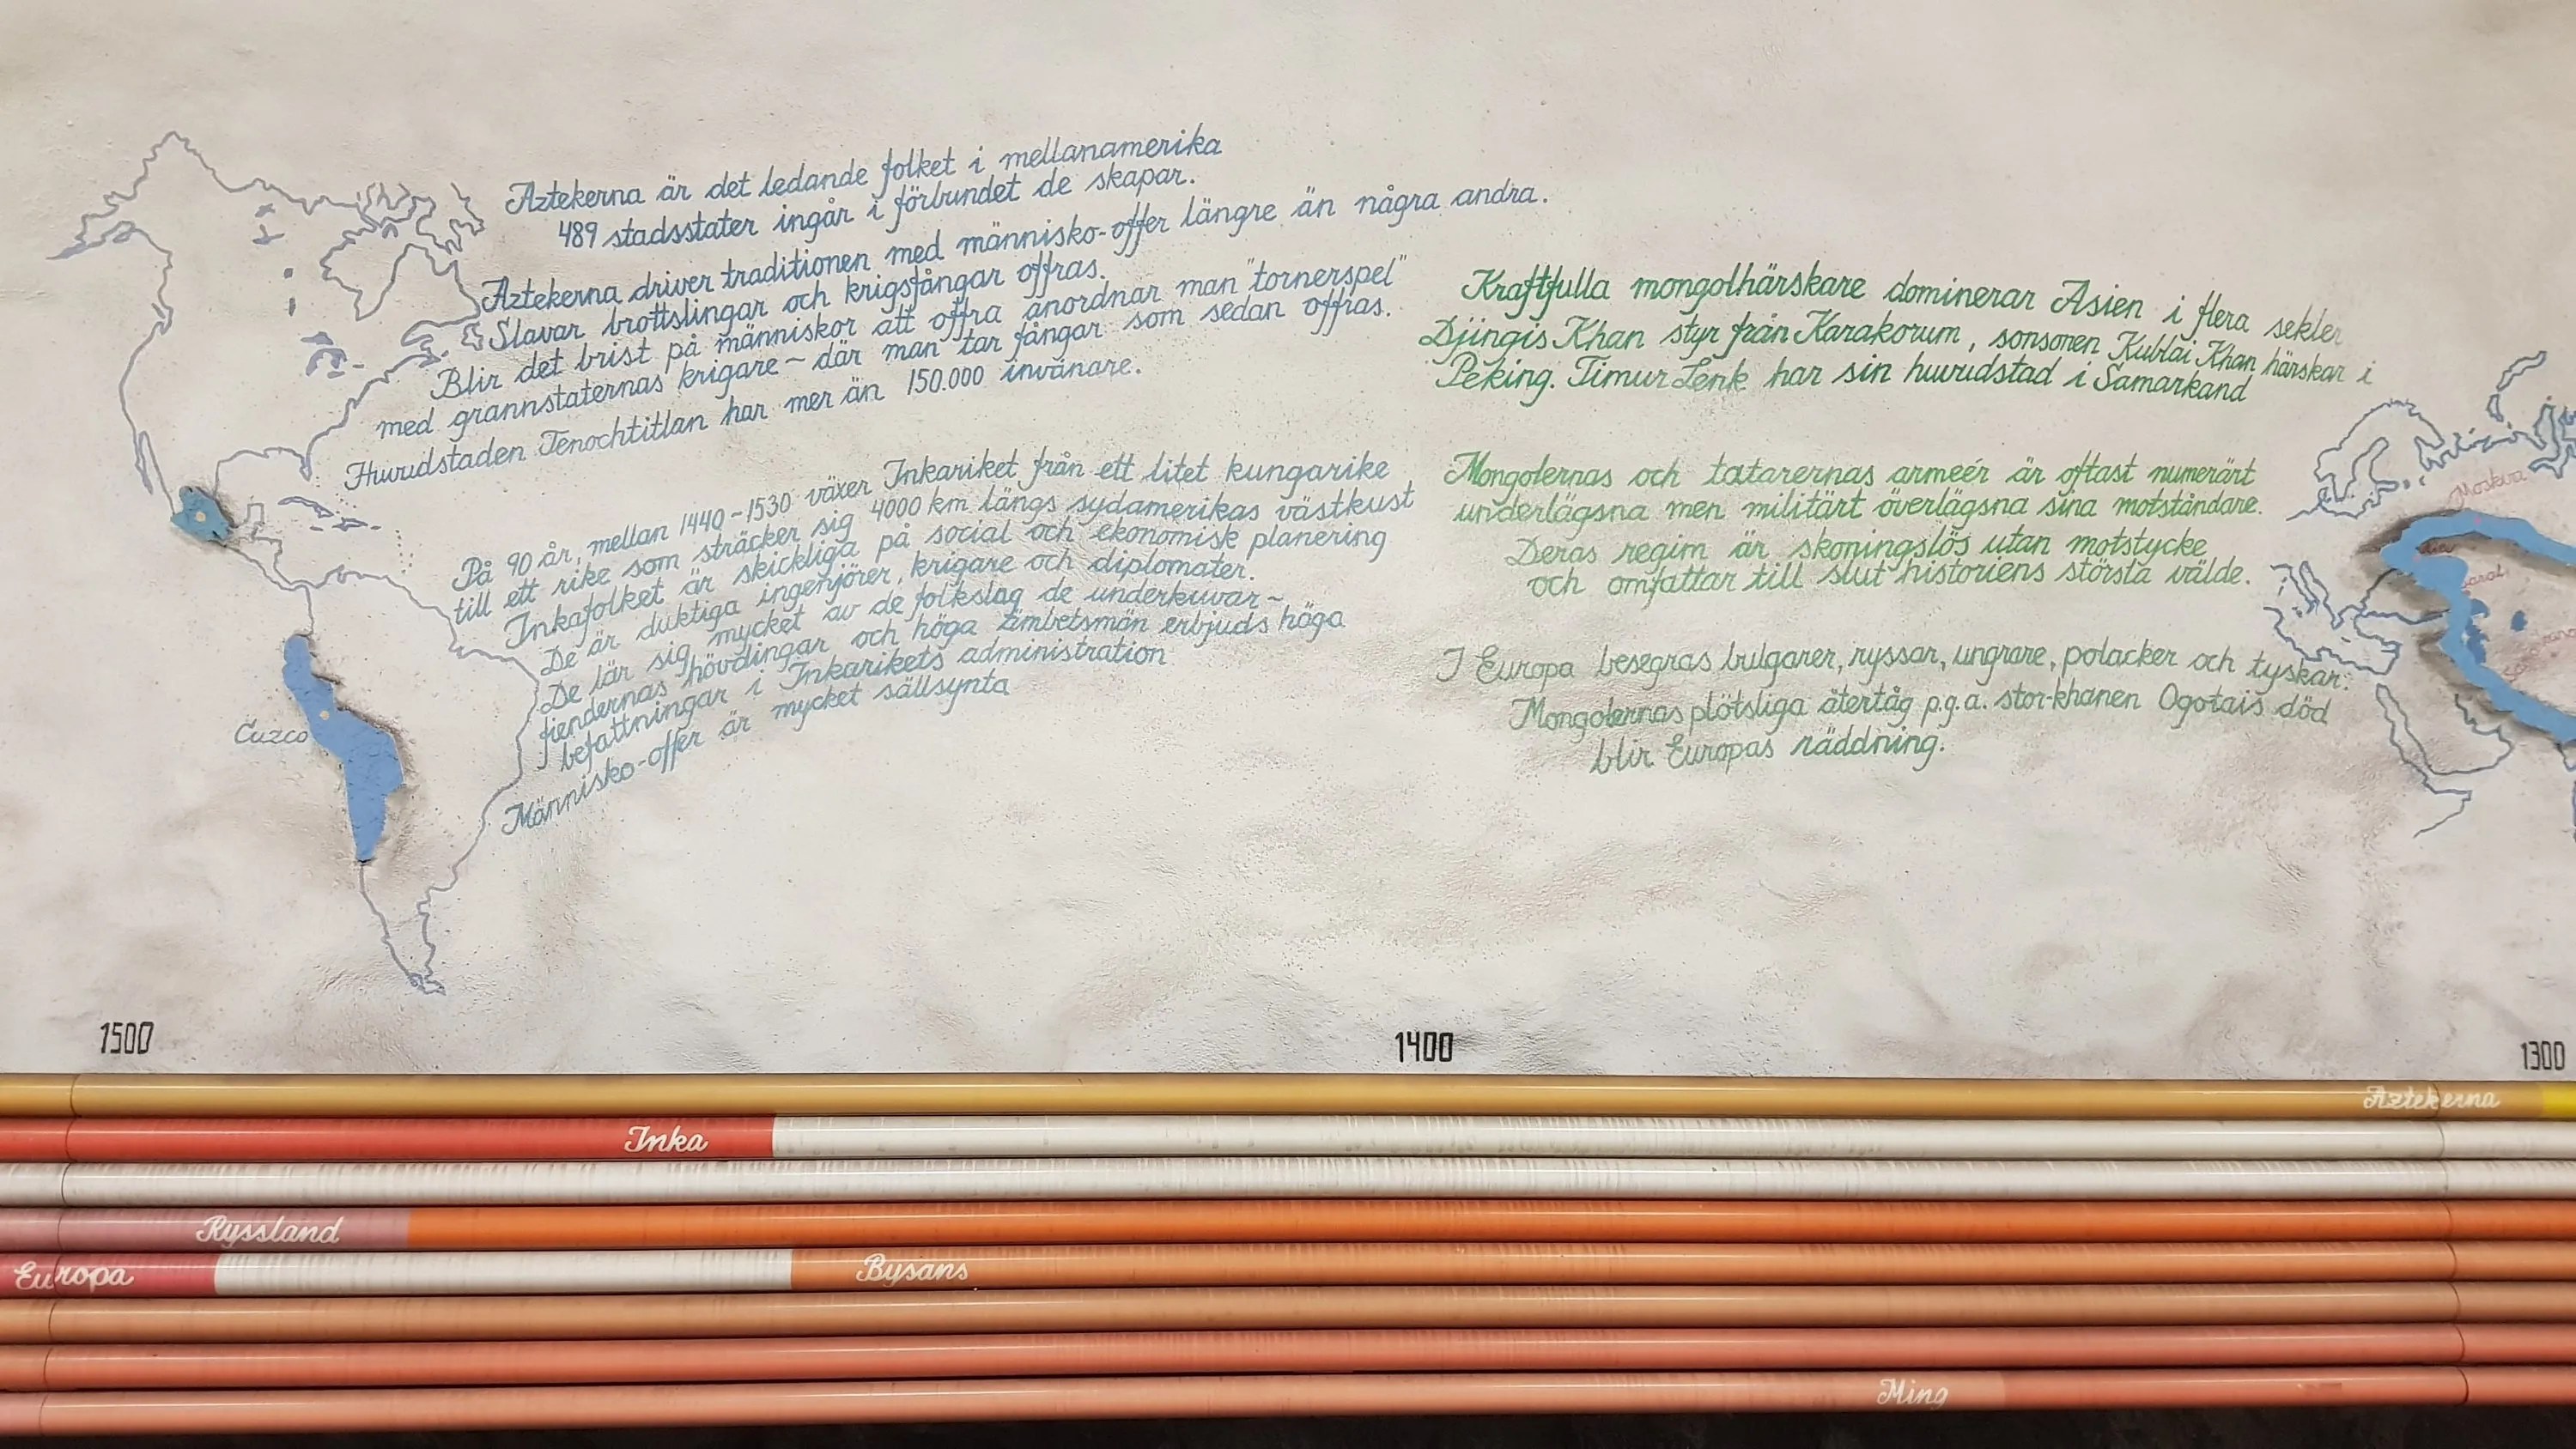 Aztekerna är det ledande folket i mellanamerika
489 stadsstater ingår i förbundet de skapar.
Aztekerna driver traditionen med människo-offer längre än några andra.
Slavar brottslingar och krigsfångar offras.
Blir det brist på människor att offra anordnar man "tornerspel"
med grannstaternas krigare ~ där man tar fångar som sedan offras.
Huvudstaden Tenochtitlan har mer än 150.000 invånare.
På 90 år, mellan 1440-1530 växer Inkariket från ett litet kungarike
till ett rike som sträcker sig 4000 km längs sydamerikas västkust
Inkafolket är skickliga på social och ekonomisk planering
De är duktiga ingenjörer, krigare och diplomater.
De lär sig mycket av de folkslag de underkuvar ~
fiendernas hövdingar och höga ämbetsmän erbjuds höga
befattningar i Inkarikets administration
Människo-offer är mycket sällsynta
Cuzco
Kraftfulla mongolhärskare dominerar Asien i flera sekler
Djingis Khan styr från Karakorum, sonsonen Kublai Khan härskar i
Peking. Timur Lenk har sin huvudstad i Samarkand
Mongolernas och tatarernas armeér är oftast numerärt
underlägsna men militärt överlägsna sina motståndare.
Deras regim är skoningslös utan motstycke
och omfattar till slut historiens största välde.
I Europa besegras bulgarer, ryssar, ungrare, polacker och tyskar.
Mongolernas plötsliga återtåg p.g.a. stor-khanen Ogotais död
blir Europas räddning.
Moskva
1500
1400
1300
Aztekerna
Inka
Ryssland
Europa
Bysans
Ming